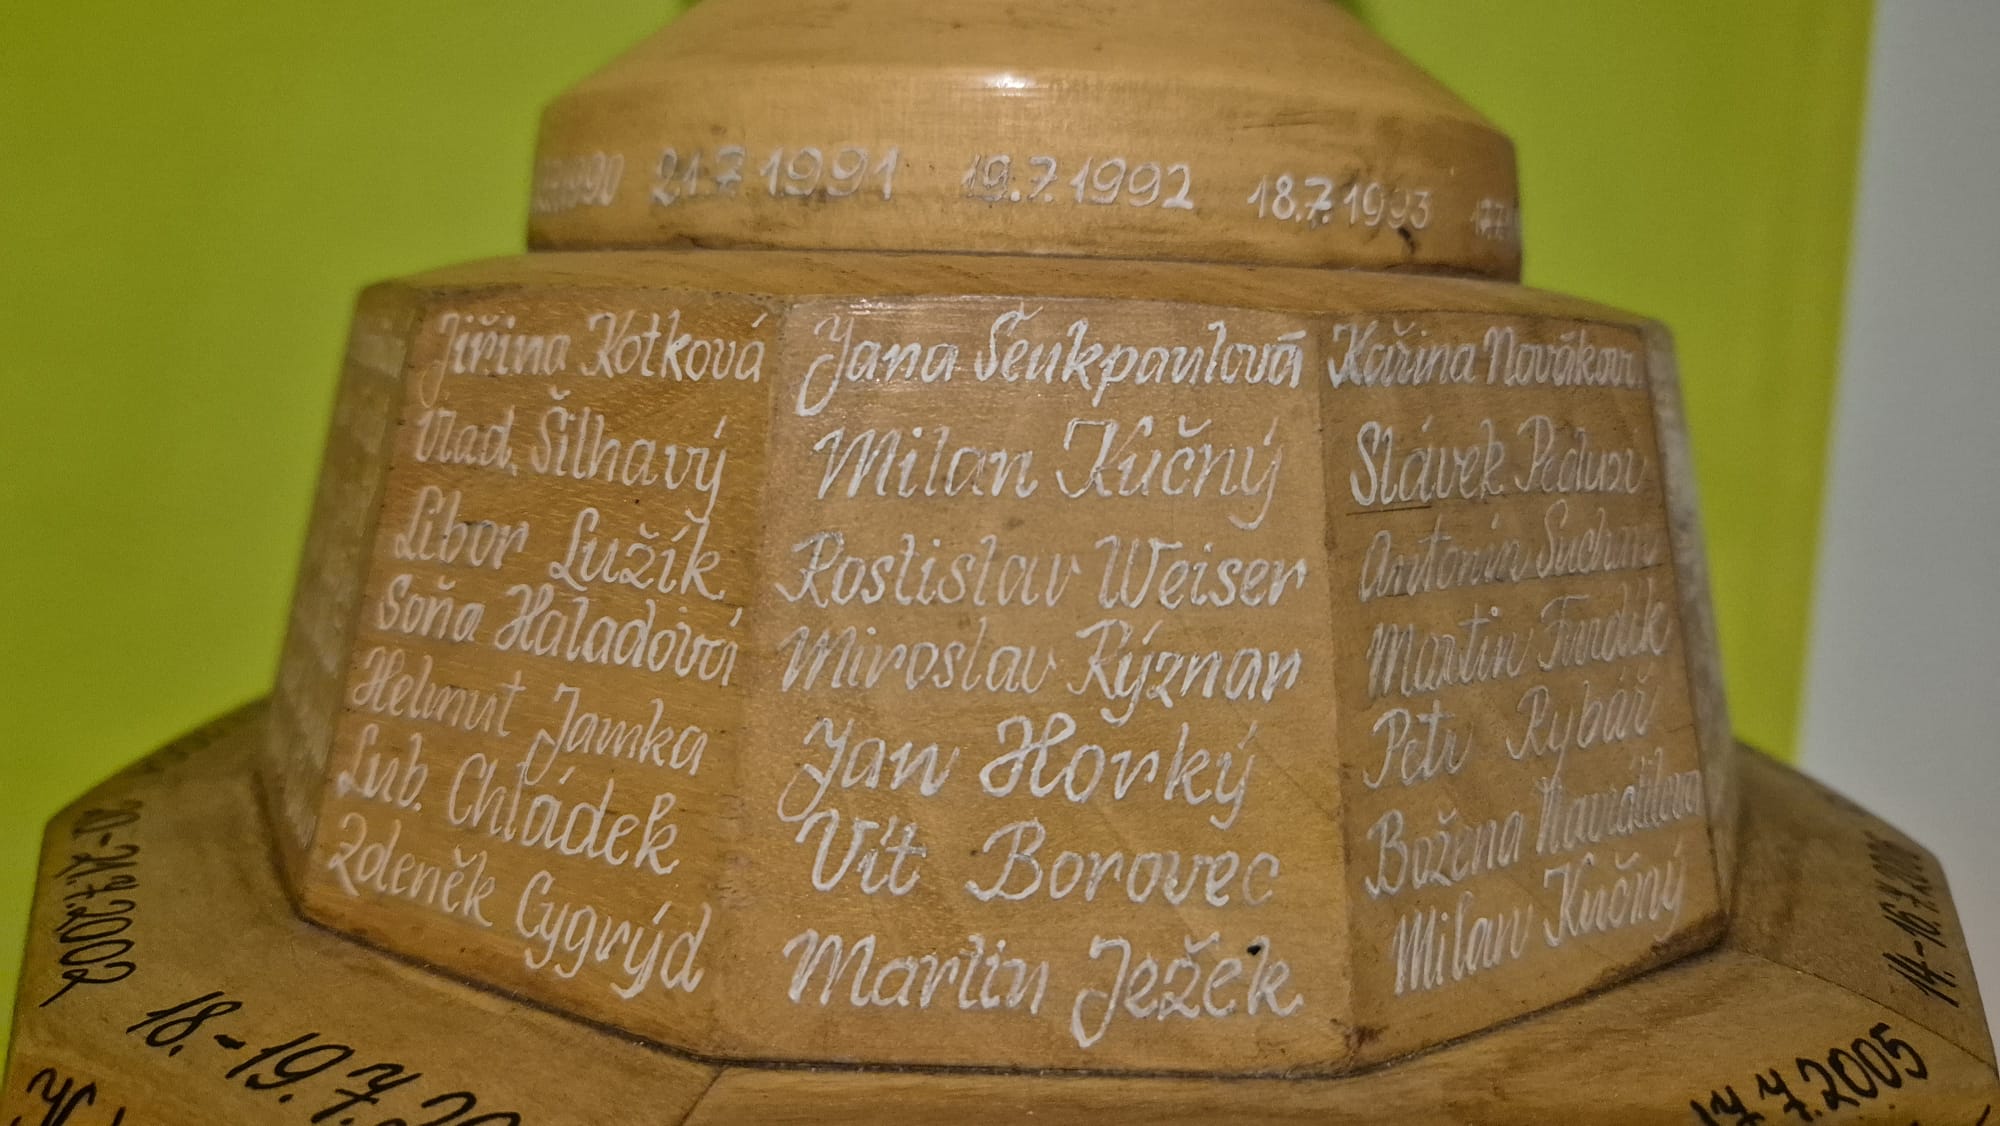 1990 21.7.1991 19.7.1992 18.7.1993
Jiřina Kotková
Vlad. Šilhavý
Libor Lužík
Soňa Haladová
Helmut Jamka
Lub. Chládek
Zdeněk Cygrýd
Jana Šeukpaulová
Milan Kučný
Rostislav Weiser
Miroslav Rýznar
Jan Horký
Vít Borovec
Martin Ježek
Kařina
Slávek
Antonín
Martin
Petr Rybář
Božena Navrátilová
Milan Kučný
20.-21.7.2002
18.-19.7.
17.7.2005
14.-16.7.